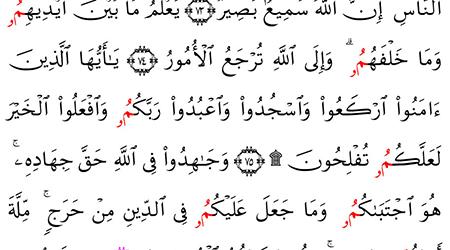 النَّاسِ إِنَّ اللَّهَ سَمِيعٌ بَصِيرٌ ﴿٧٣﴾ يَعْلَمُ مَا بَيْنَ أَيْدِيهِمُۥ
وَمَا خَلْفَهُمُۥ ۗ وَإِلَى اللَّهِ تُرْجَعُ الْأُمُورُ ﴿٧٤﴾ يَٰٓأَيُّهَا الَّذِينَ
ءَامَنُوا ارْكَعُوا وَاسْجُدُوا وَاعْبُدُوا رَبَّكُمُۥ وَافْعَلُوا الْخَيْرَ
لَعَلَّكُمُۥ تُفْلِحُونَ ۩ ﴿٧٥﴾ وَجَٰهِدُوا فِي اللَّهِ حَقَّ جِهَادِهِۦ ۚ
هُوَ اجْتَبَىٰكُمُۥ وَمَا جَعَلَ عَلَيْكُمُۥ فِي الدِّينِ مِنْ حَرَجٍ ۚ مِّلَّةَ